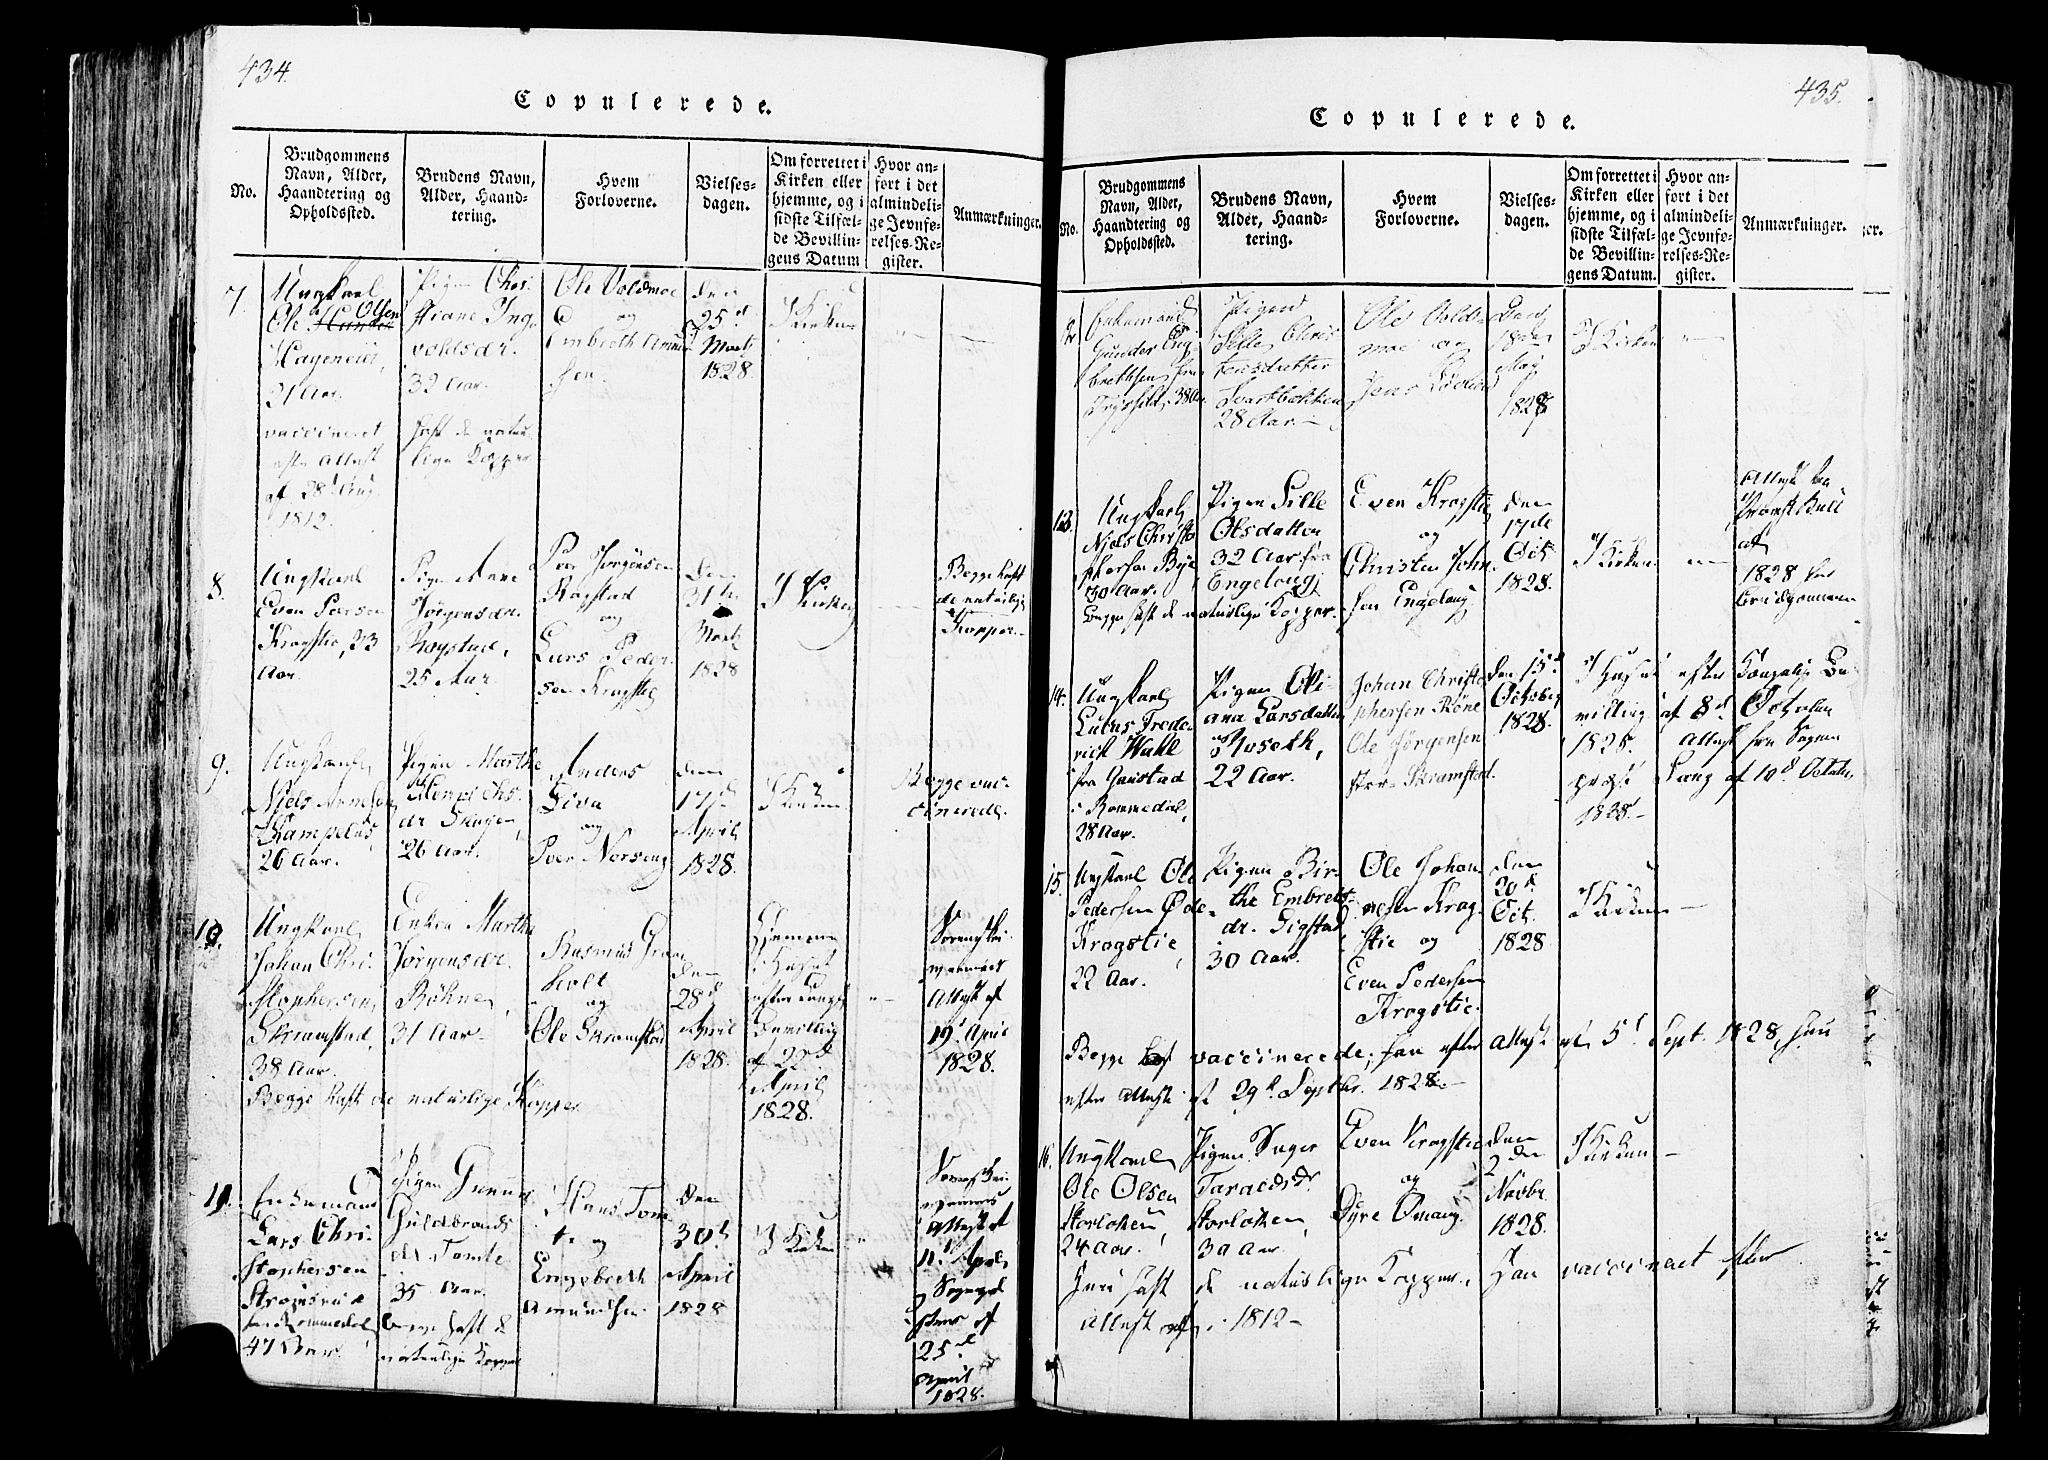 434.
Copulerede.
No.
Brudgommens
Navn, Alder,
Haandtering og
Opholdssted.
Brudens Navn,
Alder, Haand-
tering.
Hvem
Forloverne.
Vielses-
dagen.
Om forrettet i
Kirken eller
hjemme, og i
sidste Tilfæl-
de Bevillin-
gens Datum
Hvor an-
ført i det
almindeli-
ge Jevnfø-
relses-Re-
gister.
Anmærkninger.
7.
Ungkarl
Ole Olsen
Hageneier,
21 Aar.
vaccineret
efter Attest
af 28d Aug.
1812.
Pigen Chri-
stiane Ing-
voldsdr.
32 Aar.
haft de natur-
lige Kopper
Ole Voldmoe
og
Embreth Amund
sen.
Den
25d
Martz
1828.
I Kirken
8.
Ungkarl
Even Larsen
Kragstie, 23
Aar.
Pigen Mare
Jörgensdr.
Rogstad,
25 Aar
Peer Jörgensen
Rogstad
og
Lars Peder-
sen Kragstie
Den
31te
Martz
1828
I Kirken
Begge haft
de naturlige
Kopper
9.
Ungkarl
Niels Arnesen
Kampelus,
26 Aar.
Pigen Marthe
Henrichs-
dr Skogen,
26 Aar.
Anders
og
Peer Norseng
Den
17de
April
1828.
I Kirken
Begge vac-
cinerede.
10.
Ungkarl
Johan Chri-
stophersen
Skramstad,
38 Aar.
Begge haft de naturlige Kopper
Enken Marthe
Jörgensdr.
Böhne,
31 Aar
Rasmus Gron
holt
og
Ole Skramstad
Den
28d
April
1828.
Hjemme
i Huset
efter kongl.
Bevilling
af 22d
April
1828.
Attest af
19d April
1828.
11.
Enkemand
Lars Chri-
stophersen
Strömsrud
fra Rommedal
47 Aar.
Pigen Gunner
Guldbrands
dr Tomte
35 Aar.
begge haft de
naturlige Kopper
Hans Tom-
te og
Engebreth
Amundsen
Den
30d
April
1828
I Kirken
Attest af
11d April
og
af
25d
April
1828.
435.
Copulerede.
No.
Brudgommens
Navn, Alder,
Haandtering og
Opholdssted.
Brudens Navn,
Alder, Haand-
tering.
Hvem
Forloverne.
Vielses-
dagen.
Om forrettet i
Kirken eller
hjemme, og i
sidste Tilfæl-
de Bevillin-
gens Datum.
Hvor an-
ført i det
almindeli-
ge Jevnfø-
relses-Re-
gister.
Anmærkninger.
12
Enkemand
Gunder Eng-
brethsen fra
Trysild, 38 Aar
Pigen
Sille Chris-
tensdatter
Svartbækken
28 Aar
Ole Vold-
moe og
Jens
Den
18de
May
1828
I Kirken
13.
Ungkarl
Niels Christo
phersen Bye
30 Aar.
Begge haft de naturlige Kopper.
Pigen Sille
Olsdatter
32 Aar fra
Engelaug
Even Kragstie
og
Christen John-
sen Engelaug
Den
17de
Oct.
1828.
I Kirken
Attest fra
Provst Bull
af
1828 for
Brudgommen
14.
Ungkarl
Lucas Frede-
rich Wahl
fra Gaustad
i Rommedal,
28 Aar.
Pigen Oli-
ana Larsdatter
Moseth,
22 Aar.
Johan Christo
phersen Böne
Ole Jörgensen
Stor-Skramstad.
Den 15d
October
1828.
I Huset efter Kongelig Be-
villing af 8d October
1828. Attest fra Sogne
præst Pang af 10d October
1828.
15.
Ungkarl Ole
Pedersen Øde-
Kragstie,
22 Aar.
Pigen Bir-
the Embreths-
dr. Sigstad
30 Aar.
Ole Johan
nesen Krag-
stie og
Even Pedersen
Kragstie.
Den
20d
Oct.
1828
I Kirken
Begge vaccinerede; han efter Attest af 5d Sept. 1828, hun
efter Attest af 29d Septbr. 1828.
16.
Ungkarl
Ole Olsen
Storloken
24 Aar.
Pigen Inger
Taraldsdr
Storloken,
30 Aar.
Even Kragstie
og
Dyre Omang.
Den
2den
Novbr.
1828.
I Kirken
Hun haft de naturlige Kopper, Han vaccineret efter
Attest af 1812